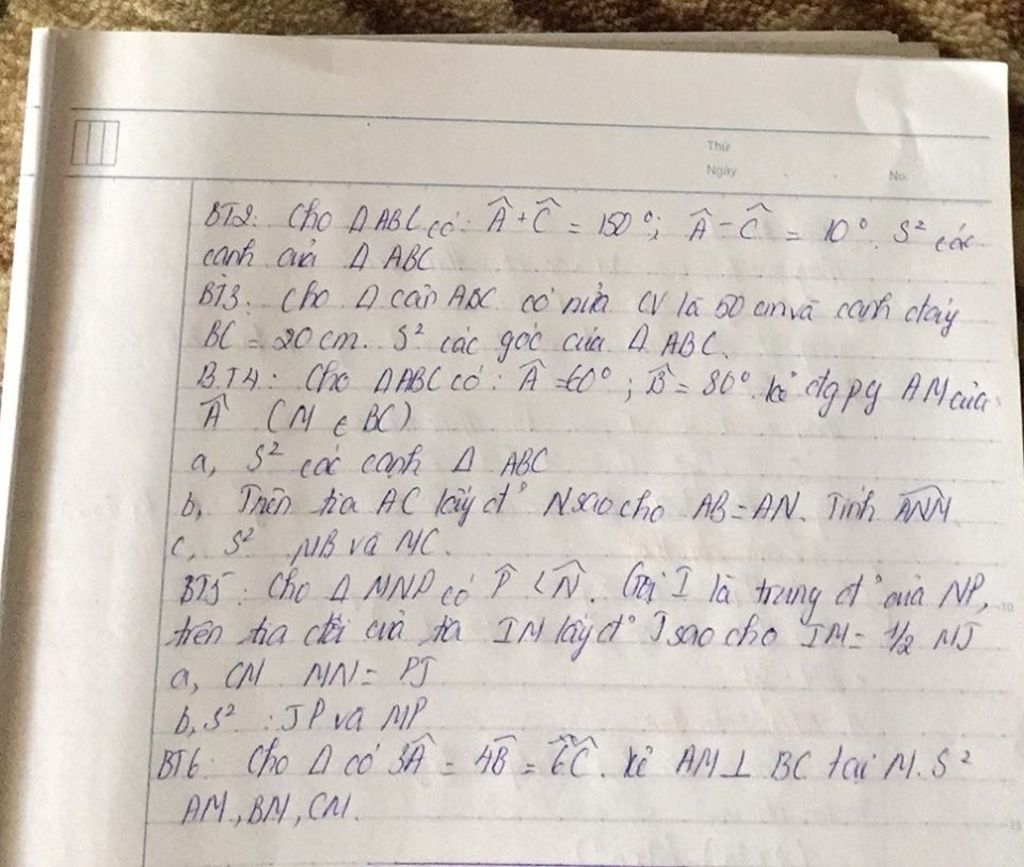 Thứ
Ngày No.
BT2: Cho Δ ABC có: Â + Ĉ = 150°; Â - Ĉ = 10°. S² các
cạnh của Δ ABC
BT3: Cho Δ cân ABC có nửa CV là 50 cm và cạnh đáy
BC = 20 cm. S² các góc của Δ ABC.
BT4: Cho ΔABC có: Â = 60°; B̂ = 80°. kẻ đg pg AM của
Â (M ∈ BC)
a, S² các cạnh Δ ABC
b, Trên tia AC lấy đ° N sao cho AB = AN. Tính ANM
c, S² MB và MC.
BT5: Cho Δ MNP có P̂ < N̂. Gọi I là trung đ° của NP,
trên tia đối của tia IM lấy đ° J sao cho IM = 1/2 MJ
a, CM MN = PJ
b, S²: JP và MP
BT6: Cho Δ có 3Â = 4B̂ = 6Ĉ. kẻ AM ⊥ BC tại M. S²
AM, BM, CM.